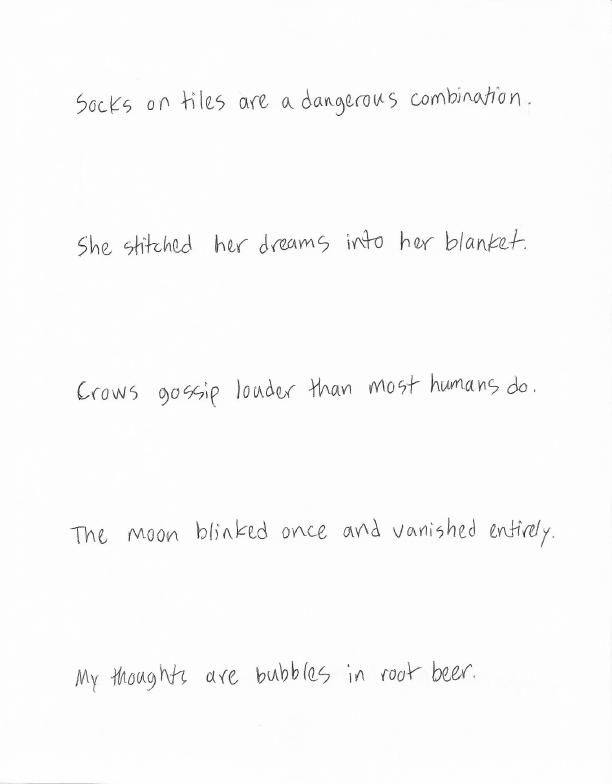 Socks on tiles are a dangerous combination.
She stitched her dreams into her blanket.
Crows gossip louder than most humans do.
The moon blinked once and vanished entirely.
My thoughts are bubbles in root beer.